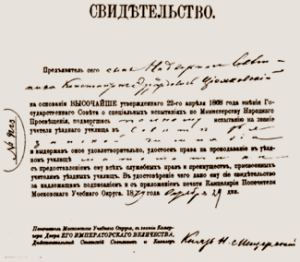 СВИДѢТЕЛЬСТВО.
Предъявитель сего сынъ Надворнаго Совѣт-
ника Константинъ Эдуардовъ Ціолковскій
на основаніи ВЫСОЧАЙШЕ утвержденнаго 22-го апрѣля 1868 года мнѣнія Го-
сударственнаго Совѣта о спеціальныхъ испытаніяхъ по Министерству Народнаго
Просвѣщенія, подвергнутъ испытанію на званіе
учителя уѣзднаго училища въ
гимназіи
и выдержалъ оное удовлетворительно, удостоенъ права на преподаваніе въ уѣзд-
ныхъ училищахъ
съ предоставленіемъ ему всѣхъ служебныхъ правъ и преимуществъ, присвоенныхъ
учителямъ уѣздныхъ училищъ. Въ удостовѣреніе чего дано ему сіе свидѣтельство
за надлежащимъ подписомъ и съ приложеніемъ печати Канцеляріи Попечителя
Московскаго Учебнаго Округа. 18 года 29 дня.
№
Попечитель Московскаго Учебнаго Округа, въ званіи Камер-
гера Двора ЕГО ИМПЕРАТОРСКАГО ВЕЛИЧЕСТВА,
Дѣйствительный Статскій Совѣтникъ и Кавалеръ
Князь Н. Мещерскій